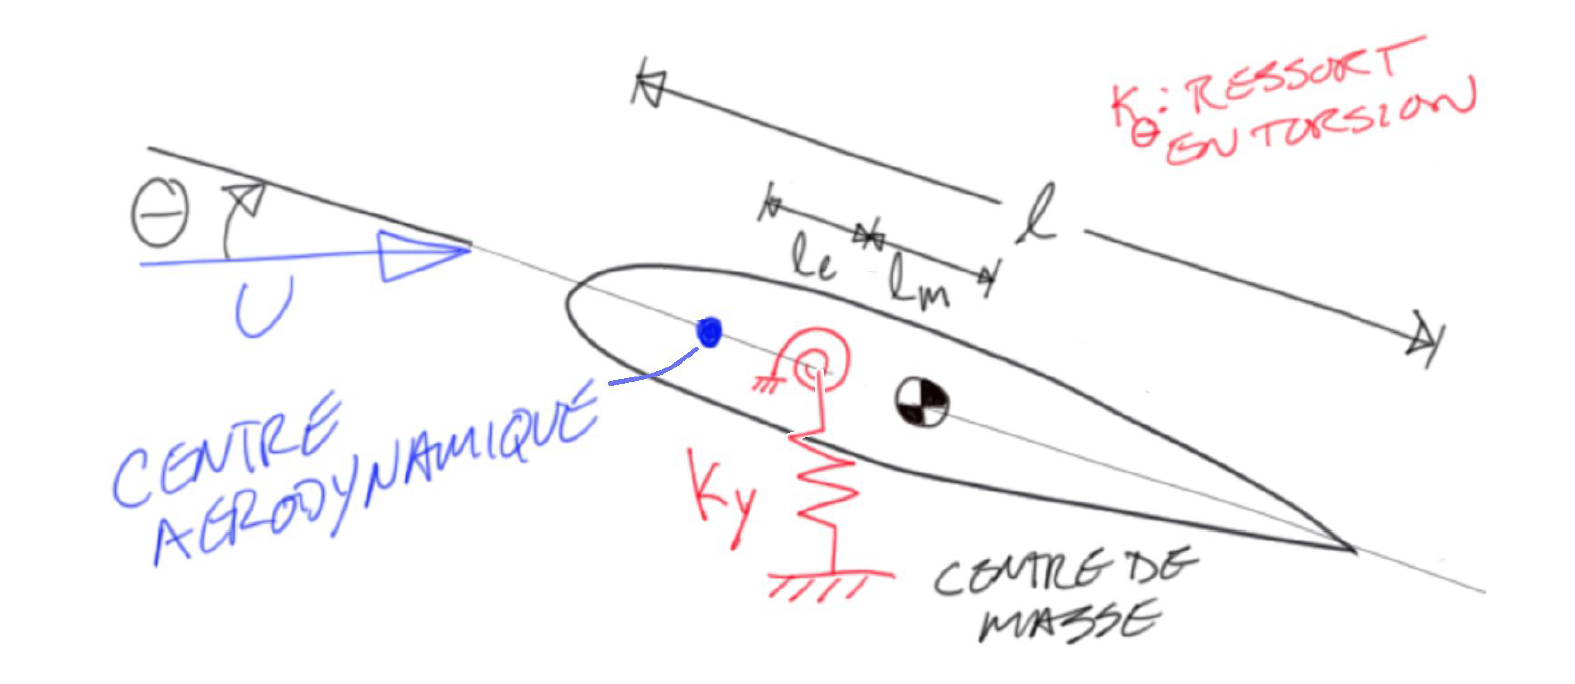 K_θ: RESSORT
EN TORSION
θ
U
l
le
lm
CENTRE
AERODYNAMIQUE
Ky
CENTRE DE
MASSE